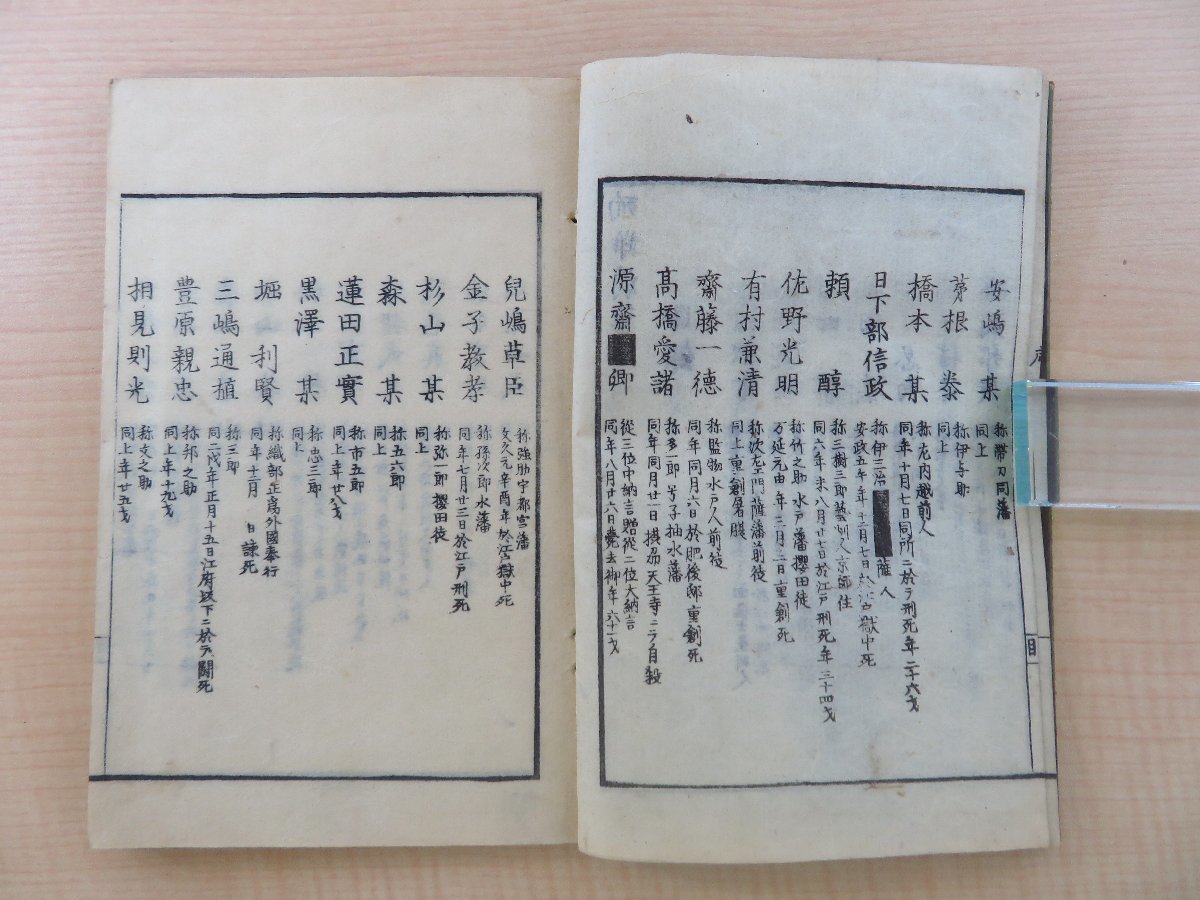 安嶋某 称帶刀同藩
同上
茅根泰 称伊与助
同上
橋本某 称左内越前人
同年十月七日同所ニ於テ刑死年二十六才
日下部信政 称伊三治 薩人
安政五午年二月七日於江戸獄中死
頼醇 称三樹三郎藝州人京師住
同六年未八月廿七日於江戸刑死年三十四才
佐野光明 称竹之助水戸藩櫻田徒
万延元由年三月三日重創死
有村兼清 称次左エ門薩藩前徒
同上重創屠腹
齋藤一德 称監物水戸人前徒
同年同月六日於肥後邸重創死
高橋愛諸 称多一郎号子抽水藩
同年同月廿一日攝刕天王寺ニテ自殺
源齋 卿 從三位中納言贈從二位大納言
同年八月廿六日薨去御年六十一才
兒嶋草臣 称強助宇都宮藩
文久元辛酉年於江戸獄中死
金子教孝 称孫次郎水藩
同年七月廿三日於江戸刑死
杉山某 称弥一郎櫻田徒
同上
森某 称五六郎
同上
蓮田正實 称市五郎
同上年廿八才
黒澤某 称忠三郎
同上
堀利賢 称織部正爲外國奉行
同年十二月 日諌死
三嶋通植 称三郎
同二戌年正月十五日江府坂下ニ於テ鬪死
豊原親忠 称邦之助
同上年十九才
相見則光 称文之助
同上年廿五才